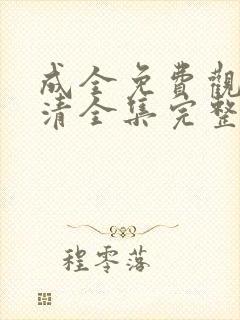 成全免費觀
清全集完整
程零落